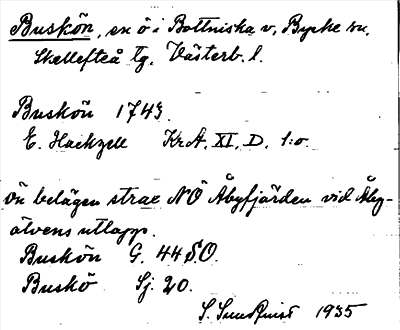 Buskön, en ö i Bottniska v, Byske sn,
Skellefteå tg. Västerb. l.
Buskön 1743.
E. Hackzell Kr.A. XI. D. 1:o.
ön belägen strax NÖ Åbyfjärden vid Åby-
älvens utlopp.
Buskön G. 44 SO.
Buskö Sj. 20.
S. Sundqvist 1935